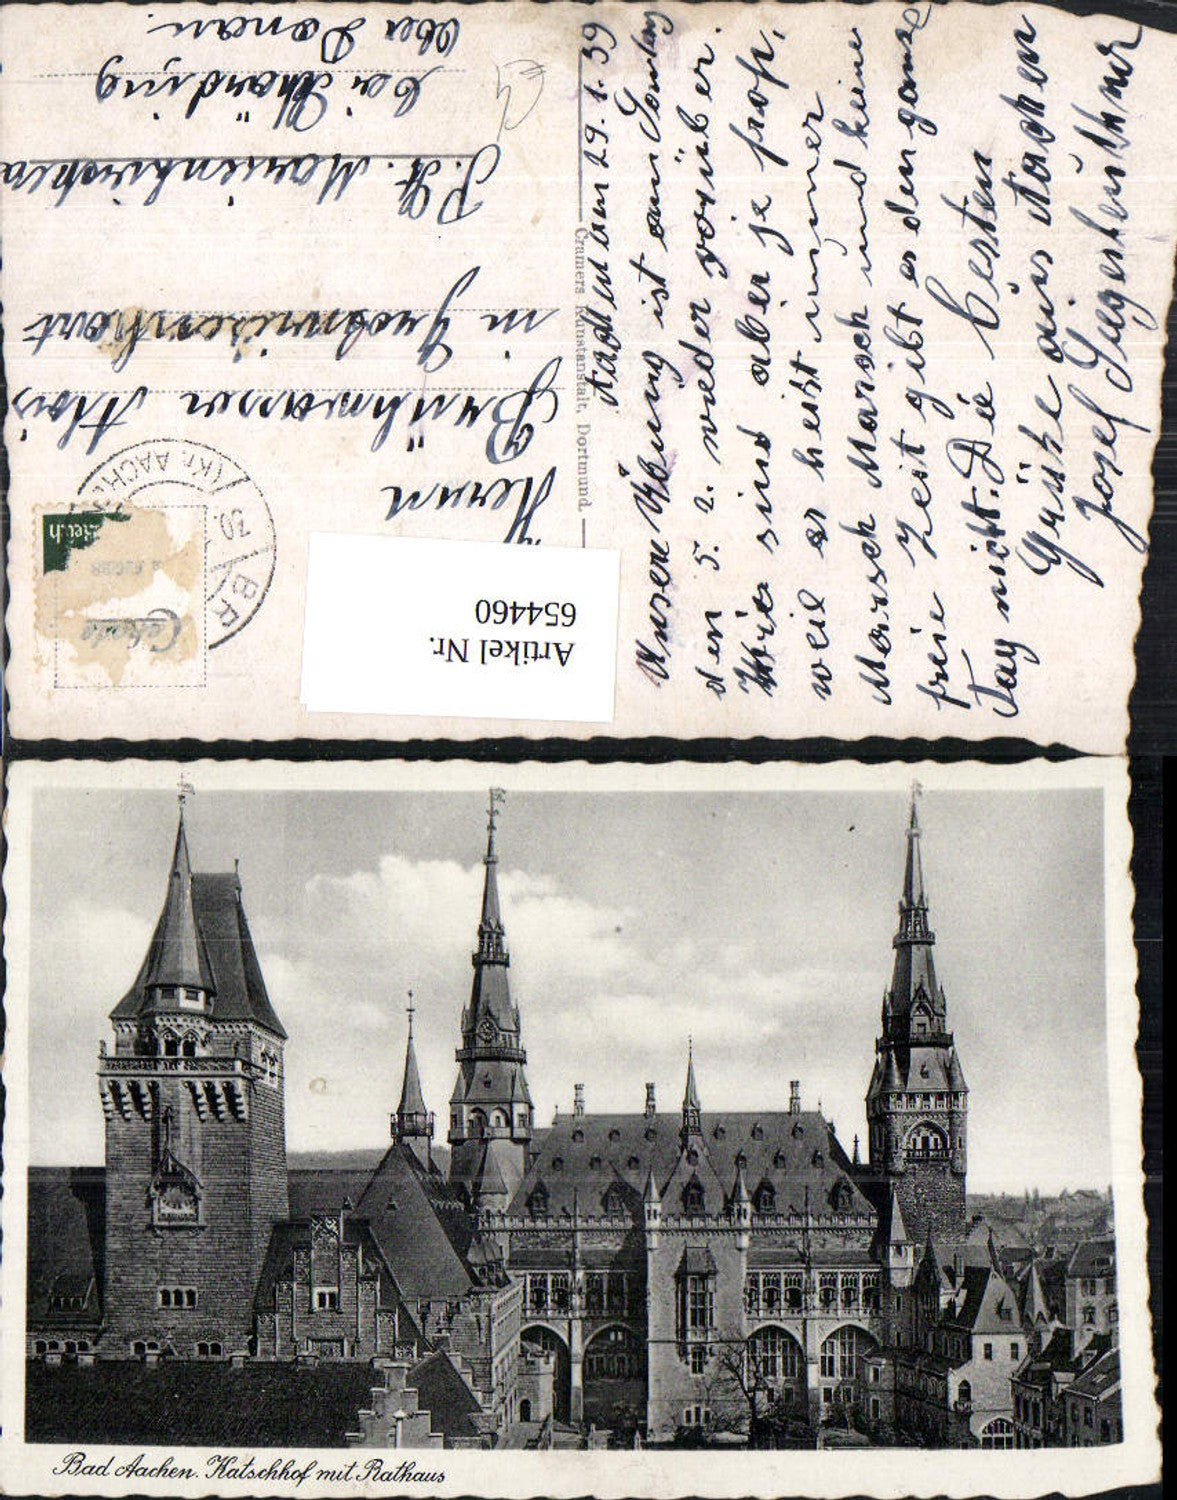 Aachen am 29.1.39
Unsere Übung ist am Sonntag
den 5. 2. wieder vorüber.
Wir sind aber je froh,
weil es heist immer
Marsch Marsch und keine
freie Zeit gibt es den ganze
Tag nicht. Die besten
Grüße aus Aachen
Josef
Cramers Kunstanstalt, Dortmund.
Herrn
Alois
in
P. St. Marienkirchen
bei Schärding
Ober Donau
Reich
30.
(Kr. AACH
Artikel Nr.
654460
Bad Aachen. Katschhof mit Rathaus